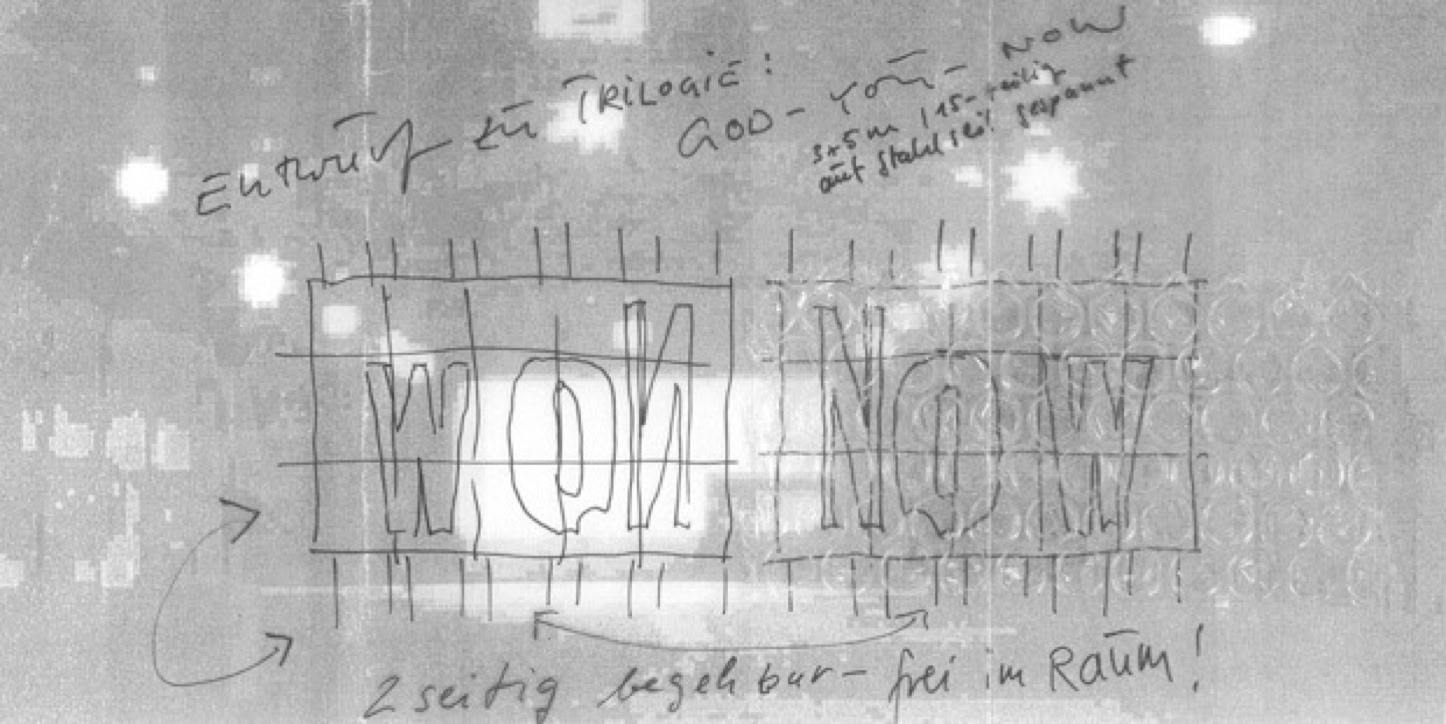 Entwurf zu TRiLOGiE:
GOD – YOU – NOW
3x5m / 15-teilig
auf Stahlseil gespannt
WOИ NOW
2seitig begehbar – frei im Raum!